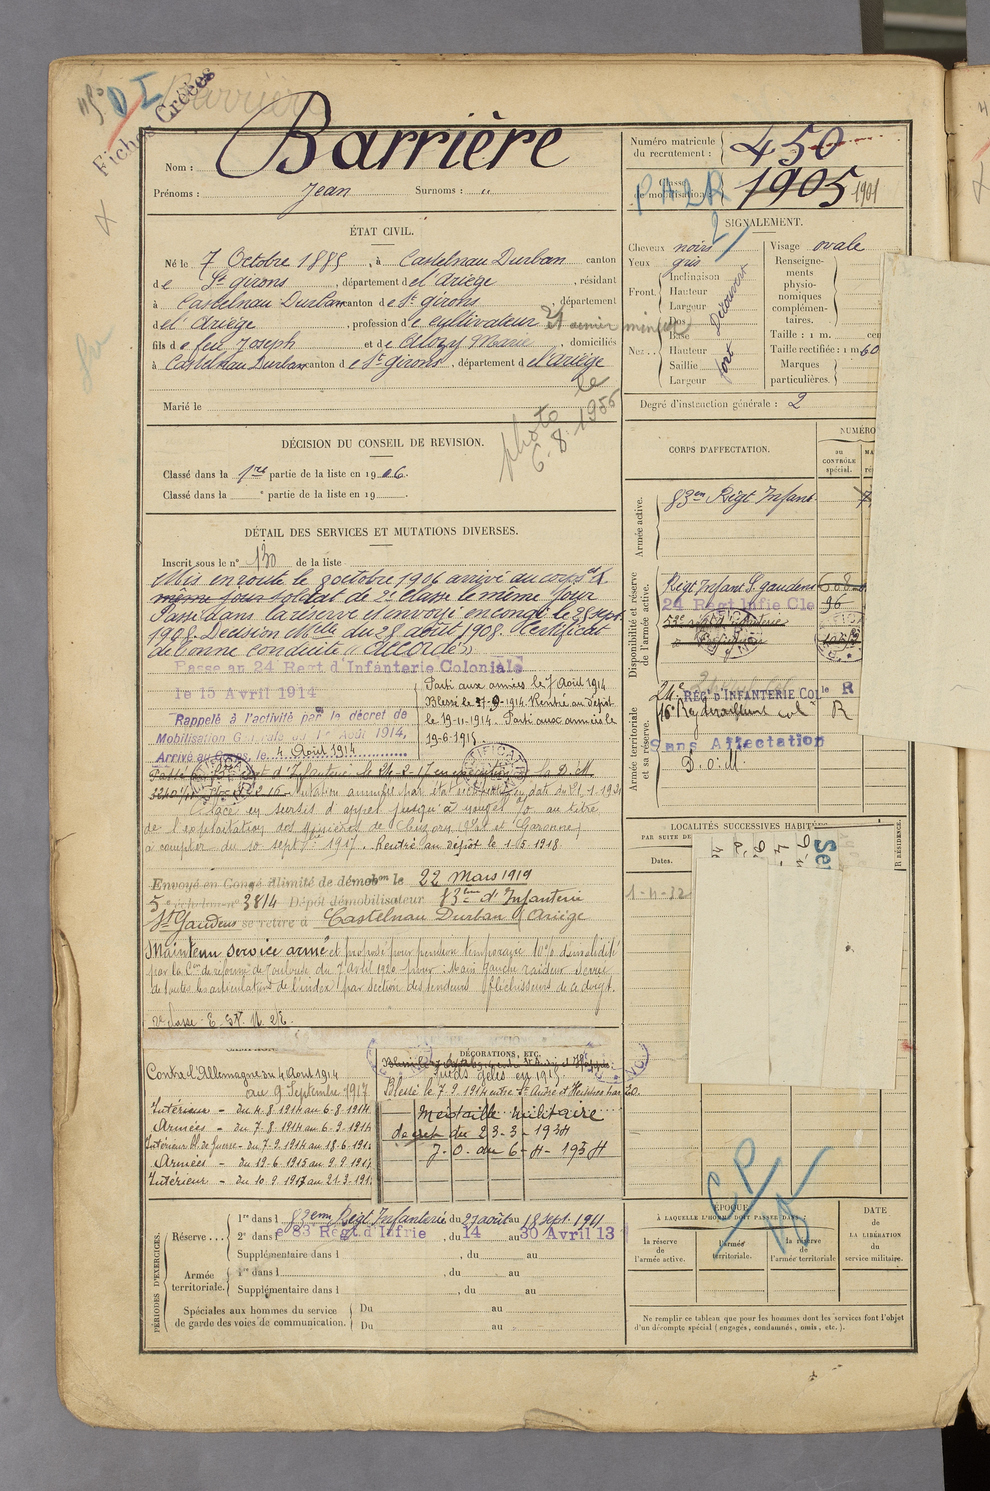 Fiches Créées
Barrière
Nom : Barrière
Prénoms : Jean Surnoms : "
Numéro matricule du recrutement : 450
Classe de mobilisation : 1905 1901
ÉTAT CIVIL.
Né le 7 Octobre 1885, à Castelnau Durban canton
de St girons, département de l'Ariège, résidant
à Castelnau Durban canton de St girons, département
de l'Ariège, profession de cultivateur
fils de feu Joseph et de Alozy Marie, domiciliés
à Castelnau Durban canton de St girons, département de l'Ariège
Marié le
photo le
6.8.1956
SIGNALEMENT.
Cheveux noirs
Yeux gris
Front. Inclinaison
Hauteur
Largeur
Découvert
Nez.. Dos
Base
Hauteur
Saillie
Largeur
fort
Visage ovale
Renseignements physionomiques complémentaires.
Taille : 1 m. cen
Taille rectifiée : 1 m 60
Marques particulières.
Degré d'instruction générale : 2
DÉCISION DU CONSEIL DE REVISION.
Classé dans la 1re partie de la liste en 1906.
Classé dans la " partie de la liste en 19 .
DÉTAIL DES SERVICES ET MUTATIONS DIVERSES.
Inscrit sous le n° 130 de la liste
Mis en route le 8 octobre 1906 arrivé au corps et
même jour soldat de 2e classe le même jour
Passé dans la réserve et envoyé en congé le 28 sept
1908. Décision Mlle du 28 août 1908. Certificat
de bonne conduite "Accordé"
Passé au 24 Régt d'Infanterie Coloniale
le 15 Avril 1914
Rappelé à l'activité par le décret de
Mobilisation Générale du 1er Août 1914,
Arrivé au Corps, le 4 Août 1914
Parti aux armées le 7 Août 1914
Blessé le 27-9-1914. Rentré au dépôt
le 19-11-1914. Parti aux armées le
19-6-1915
Placé en sursis d'appel jusqu'à nouvel o/o au titre
de l'exploitation des Minières de
à compter du 10 septbre 1917. Rentré au dépôt le 1-05-1918
Envoyé en Congé illimité de démobon le 22 Mars 1919
5e échelon n° 3814 Dépôt démobilisateur 83ème d'Infanterie
St Gaudens se retire à Castelnau Durban (Ariège
Maintenu service armé et proposé pour pension temporaire 10% d'invalidité
par la Con de réforme de Toulouse du 7 Avril 1920 pour : Main gauche raideur serrée
de toutes les articulations de l'index par section des tendeurs fléchisseurs de ce doigt.
CORPS D'AFFECTATION.
NUMÉRO
AU CONTRÔLE spécial.
Armée active.
83em Régt Infant.
Disponibilité et réserve de l'armée active.
Régt Infant S. gaudens
24 Régt Infie Cle 96
Armée territoriale et sa réserve.
24e RÉGt D'INFANTERIE COLle R
R
Sans Affectation
D.O.M.
LOCALITÉS SUCCESSIVES HABITÉES
PAR SUITE DE
Dates.
1-4-32
CAMPAGNES.
Contre l'Allemagne du 4 Août 1914
au 9 Septembre 1917
Intérieur - du 4-8-1914 au 6-8-1914
Armées - du 7-8-1914 au 6-9-1914
Intérieur Bl. de Guerre - du 7-9-1914 au 18-6-191
Armées - du 19-6-1915 au 9-9-1917
Intérieur - du 10-9-1917 au 21-3-191
DÉCORATIONS, ETC.
Pieds gelés en 1915.
Blessé le 7-9-1914 entre St André et Heilmes par EO.
Médaille Militaire
décret du 23-3-1934
J.O. du 6-4-1934
PÉRIODES D'EXERCICES.
Réserve... 1re dans l 83em Régt Infanterie du 27 août au 18 sept. 1911
2e dans l e 83 Régt d'Infrie, du 14 au 30 Avril 13
Supplémentaire dans l , du au
Armée territoriale. 1re dans l , du au
Supplémentaire dans l , du au
Spéciales aux hommes du service de garde des voies de communication. Du au
Du au
ÉPOQUE
À LAQUELLE L'HOMME DOIT PASSER DANS :
la réserve de l'armée active.
l'armée territoriale.
la réserve de l'armée territoriale
DATE de LA LIBÉRATION du service militaire.
Ne remplir ce tableau que pour les hommes dont les services font l'objet
d'un décompte spécial (engagés, condamnés, omis, etc.).